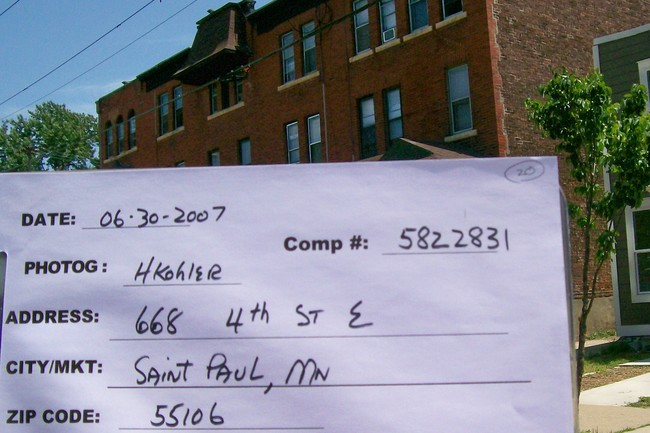 20
DATE: 06-30-2007
Comp #: 5822831
PHOTOG: HKohler
ADDRESS: 668 4th ST E
CITY/MKT: SAINT PAUL, MN
ZIP CODE: 55106